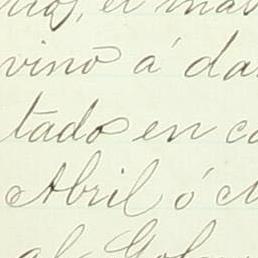 el mas
vino á da
tado en c
Abril ó
al Gol